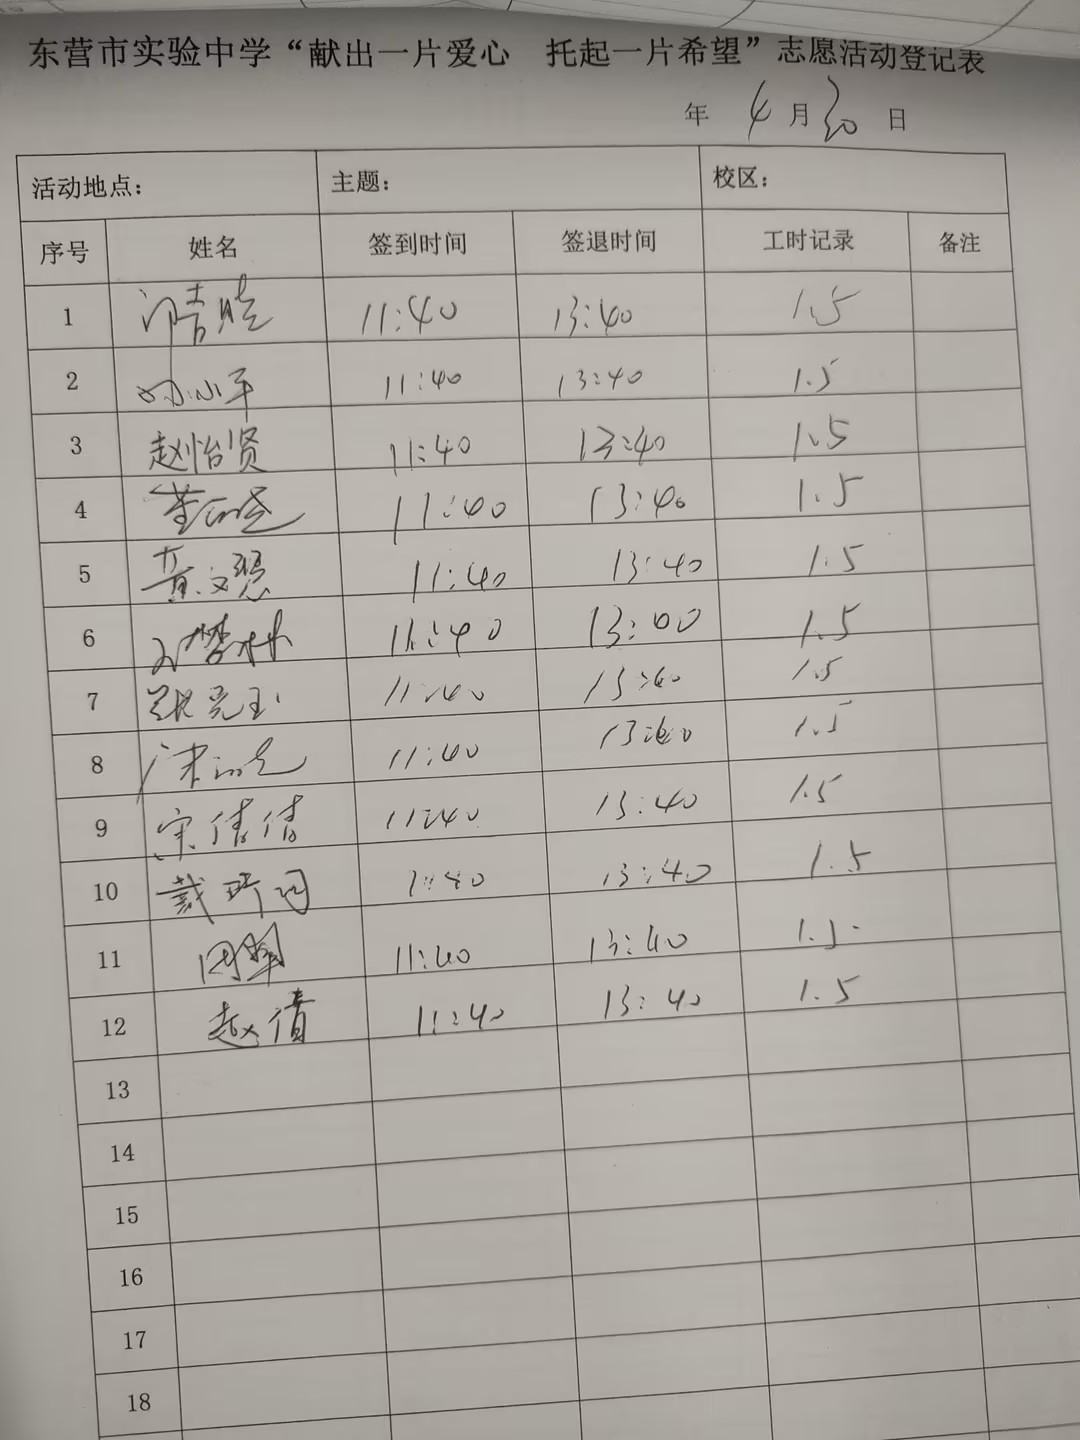 东营市实验中学“献出一片爱心 托起一片希望”志愿活动登记表
年 4月30日
活动地点: 主题: 校区:
序号 姓名 签到时间 签退时间 工时记录 备注
1 11:40 13:40 1.5
2 11:40 13:40 1.5
3 赵怡贤 11:40 13:40 1.5
4 11:40 13:40 1.5
5 黄文 11:40 13:40 1.5
6 11:40 13:00 1.5
7 11:40 13:40 1.5
8 11:40 13:40 1.5
9 宋倩倩 11:40 13:40 1.5
10 戴 1:40 13:40 1.5
11 11:40 13:40 1.5
12 赵倩 11:40 13:40 1.5
13
14
15
16
17
18